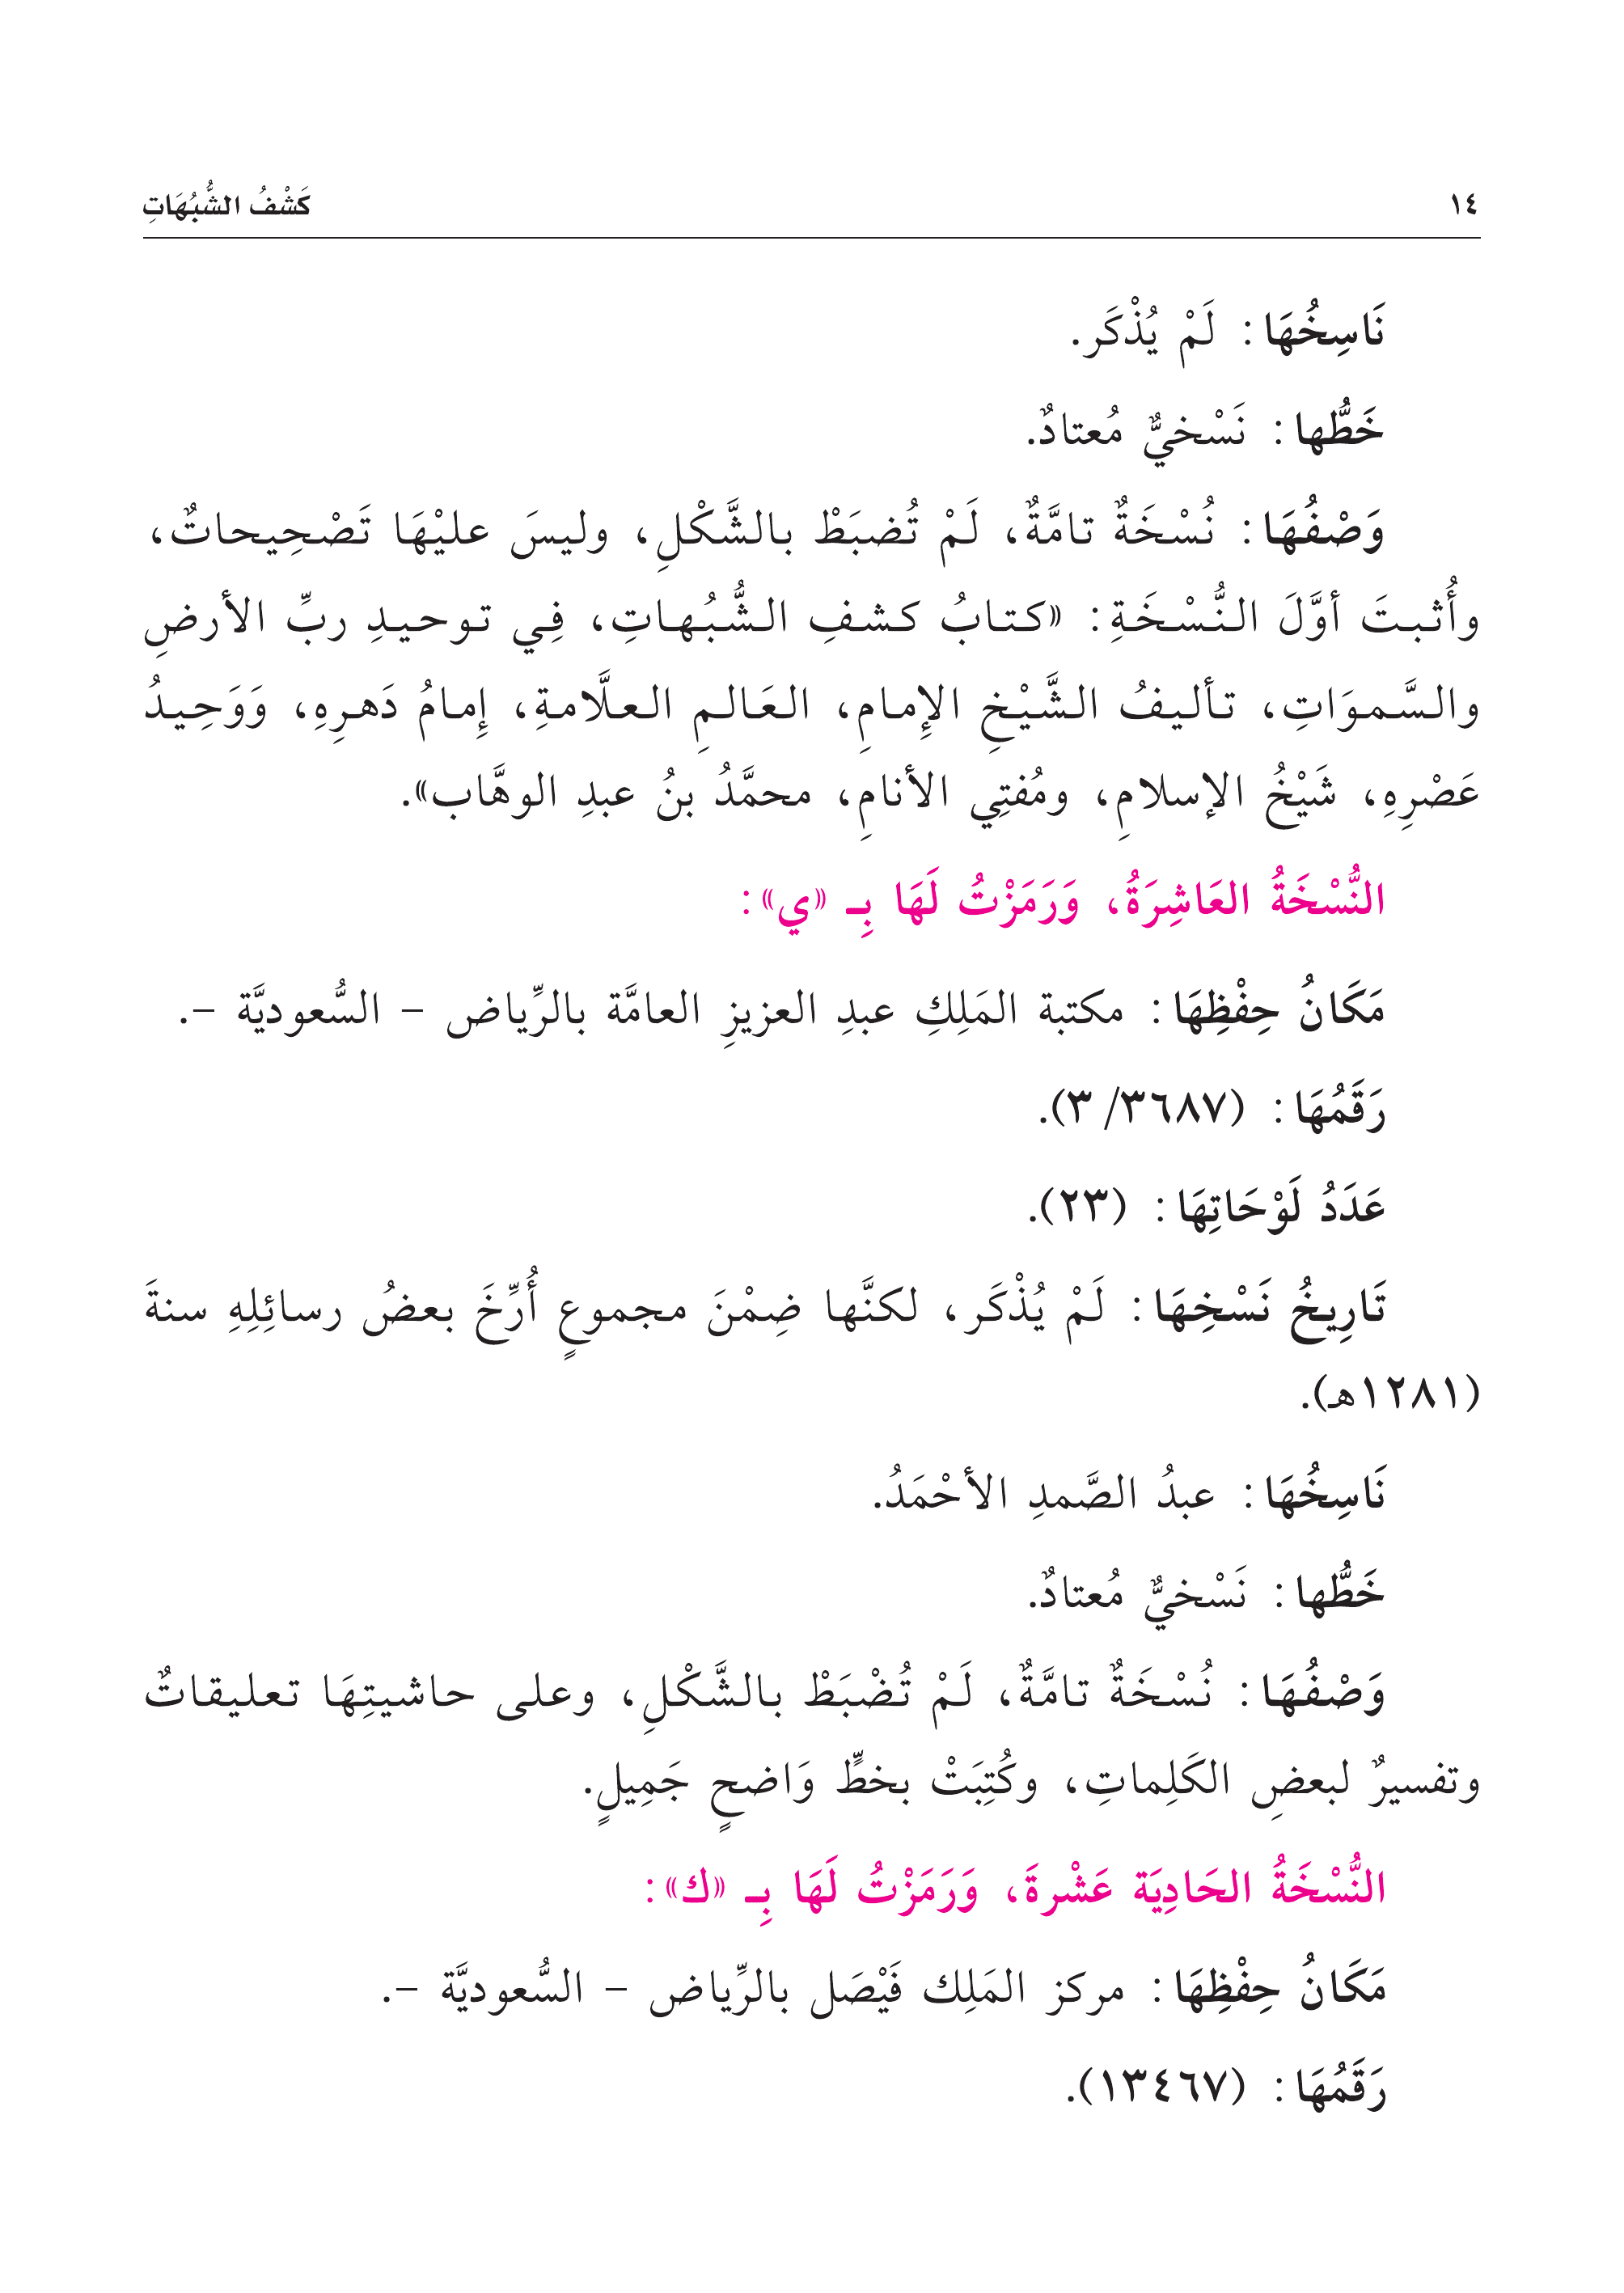 ١٤ كَشْفُ الشُّبُهَاتِ
نَاسِخُهَا: لَمْ يُذْكَر.
خَطُّها: نَسْخيٌّ مُعتادٌ.
وَصْفُهَا: نُسْخَةٌ تامَّةٌ، لَمْ تُضبَطْ بالشَّكْلِ، وليسَ عليْهَا تَصْحِيحاتٌ،
وأُثبتَ أوَّلَ النُّسْخَةِ: «كتابُ كشفِ الشُّبُهاتِ، فِي توحيدِ ربِّ الأرضِ
والسَّموَاتِ، تأليفُ الشَّيْخِ الإِمامِ، العَالمِ العلَّامةِ، إِمامُ دَهرِهِ، وَوَحِيدُ
عَصْرِهِ، شَيْخُ الإسلامِ، ومُفتِي الأنامِ، محمَّدُ بنُ عبدِ الوهَّاب».
النُّسْخَةُ العَاشِرَةُ، وَرَمَزْتُ لَهَا بِـ «ي»:
مَكَانُ حِفْظِهَا: مكتبة المَلِكِ عبدِ العزيزِ العامَّة بالرِّياض – السُّعوديَّة –.
رَقَمُهَا: (٣٦٨٧/ ٣).
عَدَدُ لَوْحَاتِهَا: (٢٣).
تَارِيخُ نَسْخِهَا: لَمْ يُذْكَر، لكنَّها ضِمْنَ مجموعٍ أُرِّخَ بعضُ رسائِلِهِ سنةَ
(١٢٨١هـ).
نَاسِخُهَا: عبدُ الصَّمدِ الأحْمَدُ.
خَطُّها: نَسْخيٌّ مُعتادٌ.
وَصْفُهَا: نُسْخَةٌ تامَّةٌ، لَمْ تُضْبَطْ بالشَّكْلِ، وعلى حاشيتِهَا تعليقاتٌ
وتفسيرٌ لبعضِ الكَلِماتِ، وكُتِبَتْ بخطٍّ وَاضحٍ جَمِيلٍ.
النُّسْخَةُ الحَادِيَة عَشْرةَ، وَرَمَزْتُ لَهَا بِـ «ك»:
مَكَانُ حِفْظِهَا: مركز المَلِك فَيْصَل بالرِّياض – السُّعوديَّة –.
رَقَمُهَا: (١٣٤٦٧).